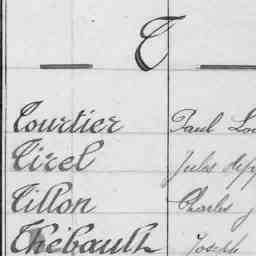 T
Tourtier Paul
Tirel Jules
Tillon Charles
Thébault Joseph